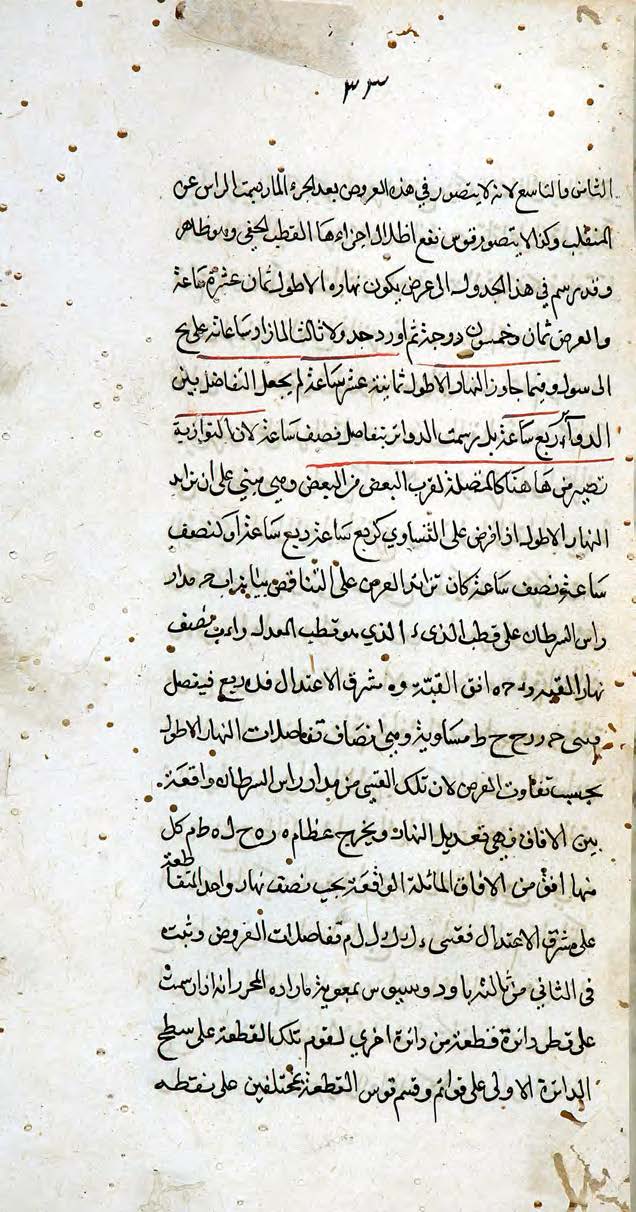 ٣٣
الثامن والتاسع لانه لا يتصور في هذه العروض بعد الجزء المار بسمت الراس عن
المنقلب وكذا لا يتصور قوس تقع اظلال اجزاءها القطب الخفي وهو ظاهر
وقد رسم في هذا الجدول الى عرض يكون نهاره الاطول ثمان عشرة ساعة
والعرض ثمان وخمسون درجة ثم اورد جدولا ثالثا لما زاد ساعاته على يح
الى سوله وفيما جاوز النهار الاطول ثمانية عشر ساعة لم يجعل التفاضل بين
الدوائر ربع ساعة بل رسمت الدوائر بتفاضل نصف ساعة لان المتوازية
تصير من هاهنا كالمتصلة لقرب البعض من البعض وهي مبني على ان تزايد
النهار الاطول اذا فرض على التساوي كربع ساعة ربع ساعة او كنصف
ساعة ونصف ساعة كان تزايد العرض على التناقص بيانه اب ح مدار
راس السرطان على قطب الذي ء ا الذي هو قطب المعدل و نصف
نهار القبة و ح ه افق القبة و ه مشرق الاعتدال ربع فيفصل
قسي ح ر ر ح ح ط متساوية وهي انصاف تفاضلات النهار الاطول
بحسب تفاوت العرض لان تلك القسي من مدار راس السرطان واقعة
بين الافاق فهي تعديل النهار ويخرج عظام ه ر ه ح ل ه ط م كل
منها افق من الافاق المائلة الواقعة بحسب نصف نهار واحد المتقاطعة
على مشرق الاعتدال فقسي ء ك ك ل ل م تفاضلات العروض وثبت
في الثاني من ثالثة ثاودوسيوس بمعونة ما زاده المحرر انه اذا رسمت
على قطر دائرة قطعة من دائرة اخرى لتقوم تلك القطعة على سطح
الدائرة الاولى على قوائم وقسم قوس القطعة بمختلفين على نقطة